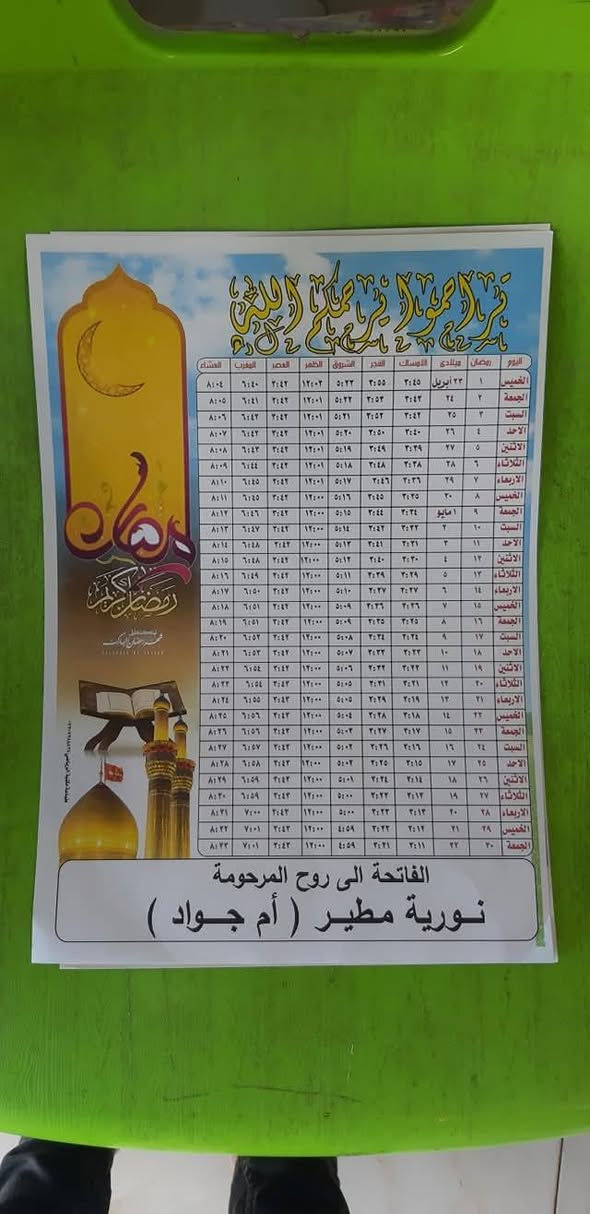 تراحموا يرحمكم الله
اليوم رمضان ميلادي الامساك الفجر الشروق الظهر العصر المغرب العشاء
الخميس ١ ٢٣ أبريل ٣:٤٥ ٣:٥٥ ٥:٢٣ ١٢:٠٢ ٣:٤٢ ٦:٤٠ ٨:٠٤
الجمعة ٢ ٢٤ ٣:٤٣ ٣:٥٣ ٥:٢٢ ١٢:٠١ ٣:٤٢ ٦:٤١ ٨:٠٥
السبت ٣ ٢٥ ٥:٢١ ١٢:٠١ ٣:٤٢ ٦:٤٢ ٨:٠٦
الاحد ٤ ٢٦ ٣:٤٠ ٣:٥٠ ٥:٢٠ ١٢:٠١ ٣:٤٢ ٦:٤٣ ٨:٠٧
الاثنين ٥ ٢٧ ٣:٣٩ ٣:٤٩ ٥:١٩ ١٢:٠١ ٣:٤٢ ٦:٤٣ ٨:٠٨
الثلاثاء ٦ ٢٨ ٣:٣٨ ٣:٤٨ ٥:١٨ ١٢:٠١ ٣:٤٢ ٦:٤٤ ٨:٠٩
الاربعاء ٧ ٢٩ ٣:٣٦ ٣:٤٦ ٥:١٧ ١٢:٠١ ٣:٤٢ ٦:٤٥ ٨:١٠
الخميس ٨ ٣٠ ٣:٣٥ ٣:٤٥ ٥:١٦ ١٢:٠٠ ٣:٤٢ ٦:٤٥ ٨:١١
الجمعة ٩ ١ مايو ٣:٣٤ ٣:٤٤ ٥:١٥ ١٢:٠٠ ٣:٤٢ ٦:٤٦ ٨:١٢
السبت ١٠ ٢ ٥:١٤ ١٢:٠٠ ٣:٤٢ ٦:٤٧ ٨:١٣
الاحد ١١ ٣ ٣:٣١ ٣:٤١ ٥:١٣ ١٢:٠٠ ٣:٤٢ ٦:٤٨ ٨:١٤
الاثنين ١٢ ٤ ٣:٣٠ ٣:٤٠ ٥:١٢ ١٢:٠٠ ٣:٤٢ ٦:٤٨ ٨:١٥
الثلاثاء ١٣ ٥ ٣:٢٩ ٣:٣٩ ٥:١١ ١٢:٠٠ ٣:٤٢ ٦:٤٩ ٨:١٦
الاربعاء ١٤ ٦ ٣:٢٧ ٣:٣٧ ٥:١٠ ١٢:٠٠ ٣:٤٢ ٦:٥٠ ٨:١٧
الخميس ١٥ ٧ ٣:٢٦ ٣:٣٦ ٥:٠٩ ١٢:٠٠ ٣:٤٢ ٦:٥١ ٨:١٨
الجمعة ١٦ ٨ ٣:٢٥ ٣:٣٥ ٥:٠٩ ١٢:٠٠ ٣:٤٢ ٦:٥١ ٨:١٩
السبت ١٧ ٩ ٣:٢٤ ٣:٣٤ ٥:٠٨ ١٢:٠٠ ٣:٤٢ ٦:٥٢ ٨:٢٠
الاحد ١٨ ١٠ ٥:٠٧ ١٢:٠٠ ٣:٤٢ ٦:٥٣ ٨:٢١
الاثنين ١٩ ١١ ٥:٠٦ ١٢:٠٠ ٣:٤٢ ٦:٥٤
الثلاثاء ٢٠ ١٢ ٣:٢١ ٣:٣١ ٥:٠٥ ١٢:٠٠ ٣:٤٢ ٦:٥٤ ٨:٢٣
الاربعاء ٢١ ١٣ ٣:١٩ ٣:٢٩ ٥:٠٥ ١٢:٠٠ ٣:٤٢ ٦:٥٥ ٨:٢٤
الخميس ٢٢ ١٤ ٣:١٨ ٣:٢٨ ٥:٠٤ ١٢:٠٠ ٣:٤٢ ٦:٥٦ ٨:٢٥
الجمعة ٢٣ ١٥ ٣:١٧ ٣:٢٧ ٥:٠٣ ١٢:٠٠ ٣:٤٢ ٦:٥٦ ٨:٢٦
السبت ٢٤ ١٦ ٣:١٦ ٣:٢٦ ١٢:٠٠ ٦:٥٧ ٨:٢٧
الاحد ٢٥ ١٧ ٣:١٥ ٣:٢٥ ٥:٠٢ ١٢:٠٠ ٦:٥٨ ٨:٢٨
الاثنين ٢٦ ١٨ ٣:١٤ ٣:٢٤ ٥:٠١ ١٢:٠٠ ٦:٥٩ ٨:٢٩
الثلاثاء ٢٧ ١٩ ٣:١٣ ٣:٢٣ ٥:٠٠ ١٢:٠٠ ٦:٥٩ ٨:٣٠
الاربعاء ٢٨ ٢٠ ٣:١٣ ٣:٢٣ ٥:٠٠ ١٢:٠٠ ٣:٤٣ ٧:٠٠ ٨:٣١
الخميس ٢٩ ٢١ ٣:١٢ ٣:٢٢ ٤:٥٩ ١٢:٠٠ ٣:٤٣ ٧:٠١ ٨:٣٢
الجمعة ٣٠ ٢٢ ٣:١١ ٣:٢١ ٤:٥٩ ١٢:٠٠ ٣:٤٣ ٧:٠١ ٨:٣٣
رمضان
رمضان كريم
الفاتحة الى روح المرحومة
نورية مطير ( أم جواد )